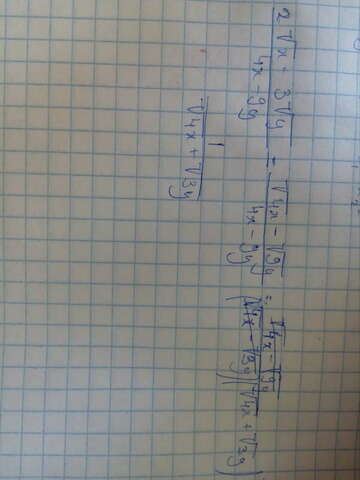 2√x - 3√y / 4x - 9y = √4x - √9y / 4x - 9y = √4x - √9y / (√4x - √3y)(√4x + √3y)
1 / √4x + √3y